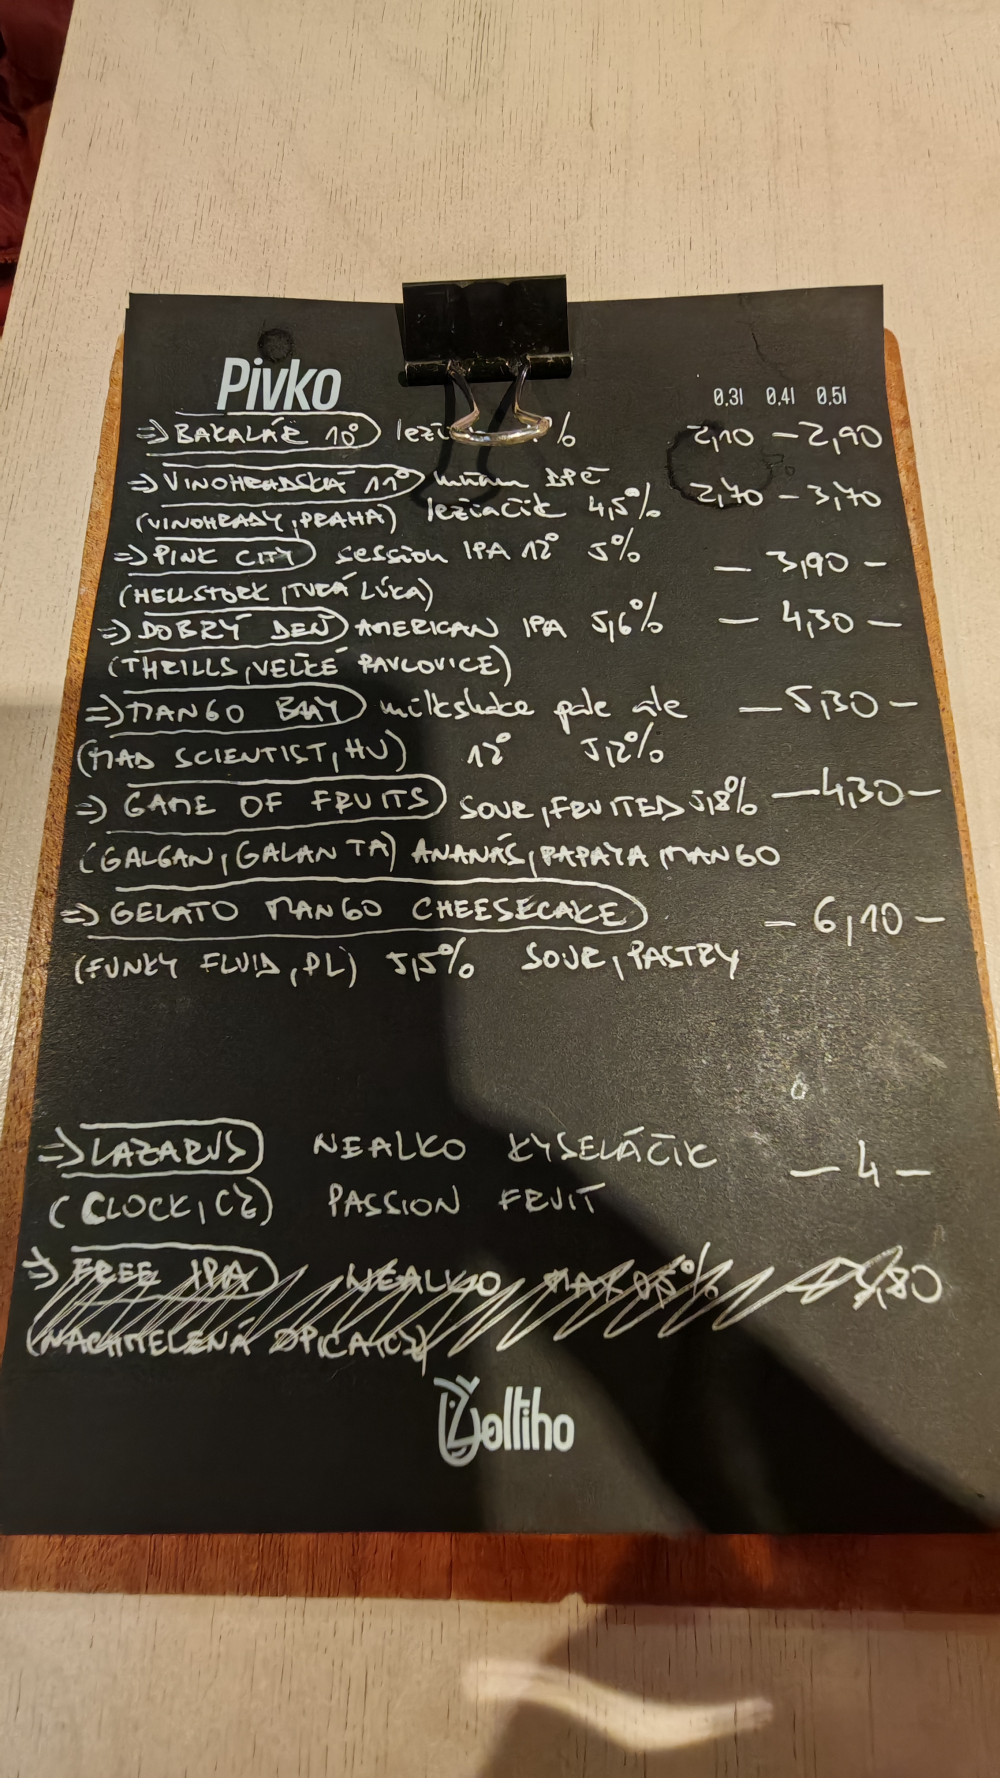 Pivko
0,3l 0,4l 0,5l
=> BAKALÁŘ 10° % 2,10 - 2,90
=> VINOHRADSKÁ 11° mňam 2,70 - 3,70
(VINOHRADY, PRAHA) ležiačik 4,5%
=> PINK CITY session IPA 12° 5% - 3,90 -
(HELLSTORK, TURÁ LÚKA)
=> DOBRÝ DEŇ AMERICAN IPA 5,6% - 4,30 -
(THRILLS, VELKÉ PAVLOVICE)
=> MANGO BAAY milkshake pale ale - 5,30 -
(MAD SCIENTIST, HU) 12° 5,2%
=> GAME OF FRUITS SOUR, FRUITED 5,8% - 4,30 -
(GALGAN, GALANTA) ANANÁS, PAPAYA, MANGO
=> GELATO MANGO CHEESECAKE - 6,10 -
(FUNKY FLUID, PL) 5,5% SOUR, PASTRY
=> LAZARUS NEALKO KYSELÁČIK - 4 -
(CLOCK, CZ) PASSION FRUIT
=> FREE IPA NEALKO MAX 0,5% - 3,80
(NACHMELENÁ OPICA, CZ)
Žoltiho